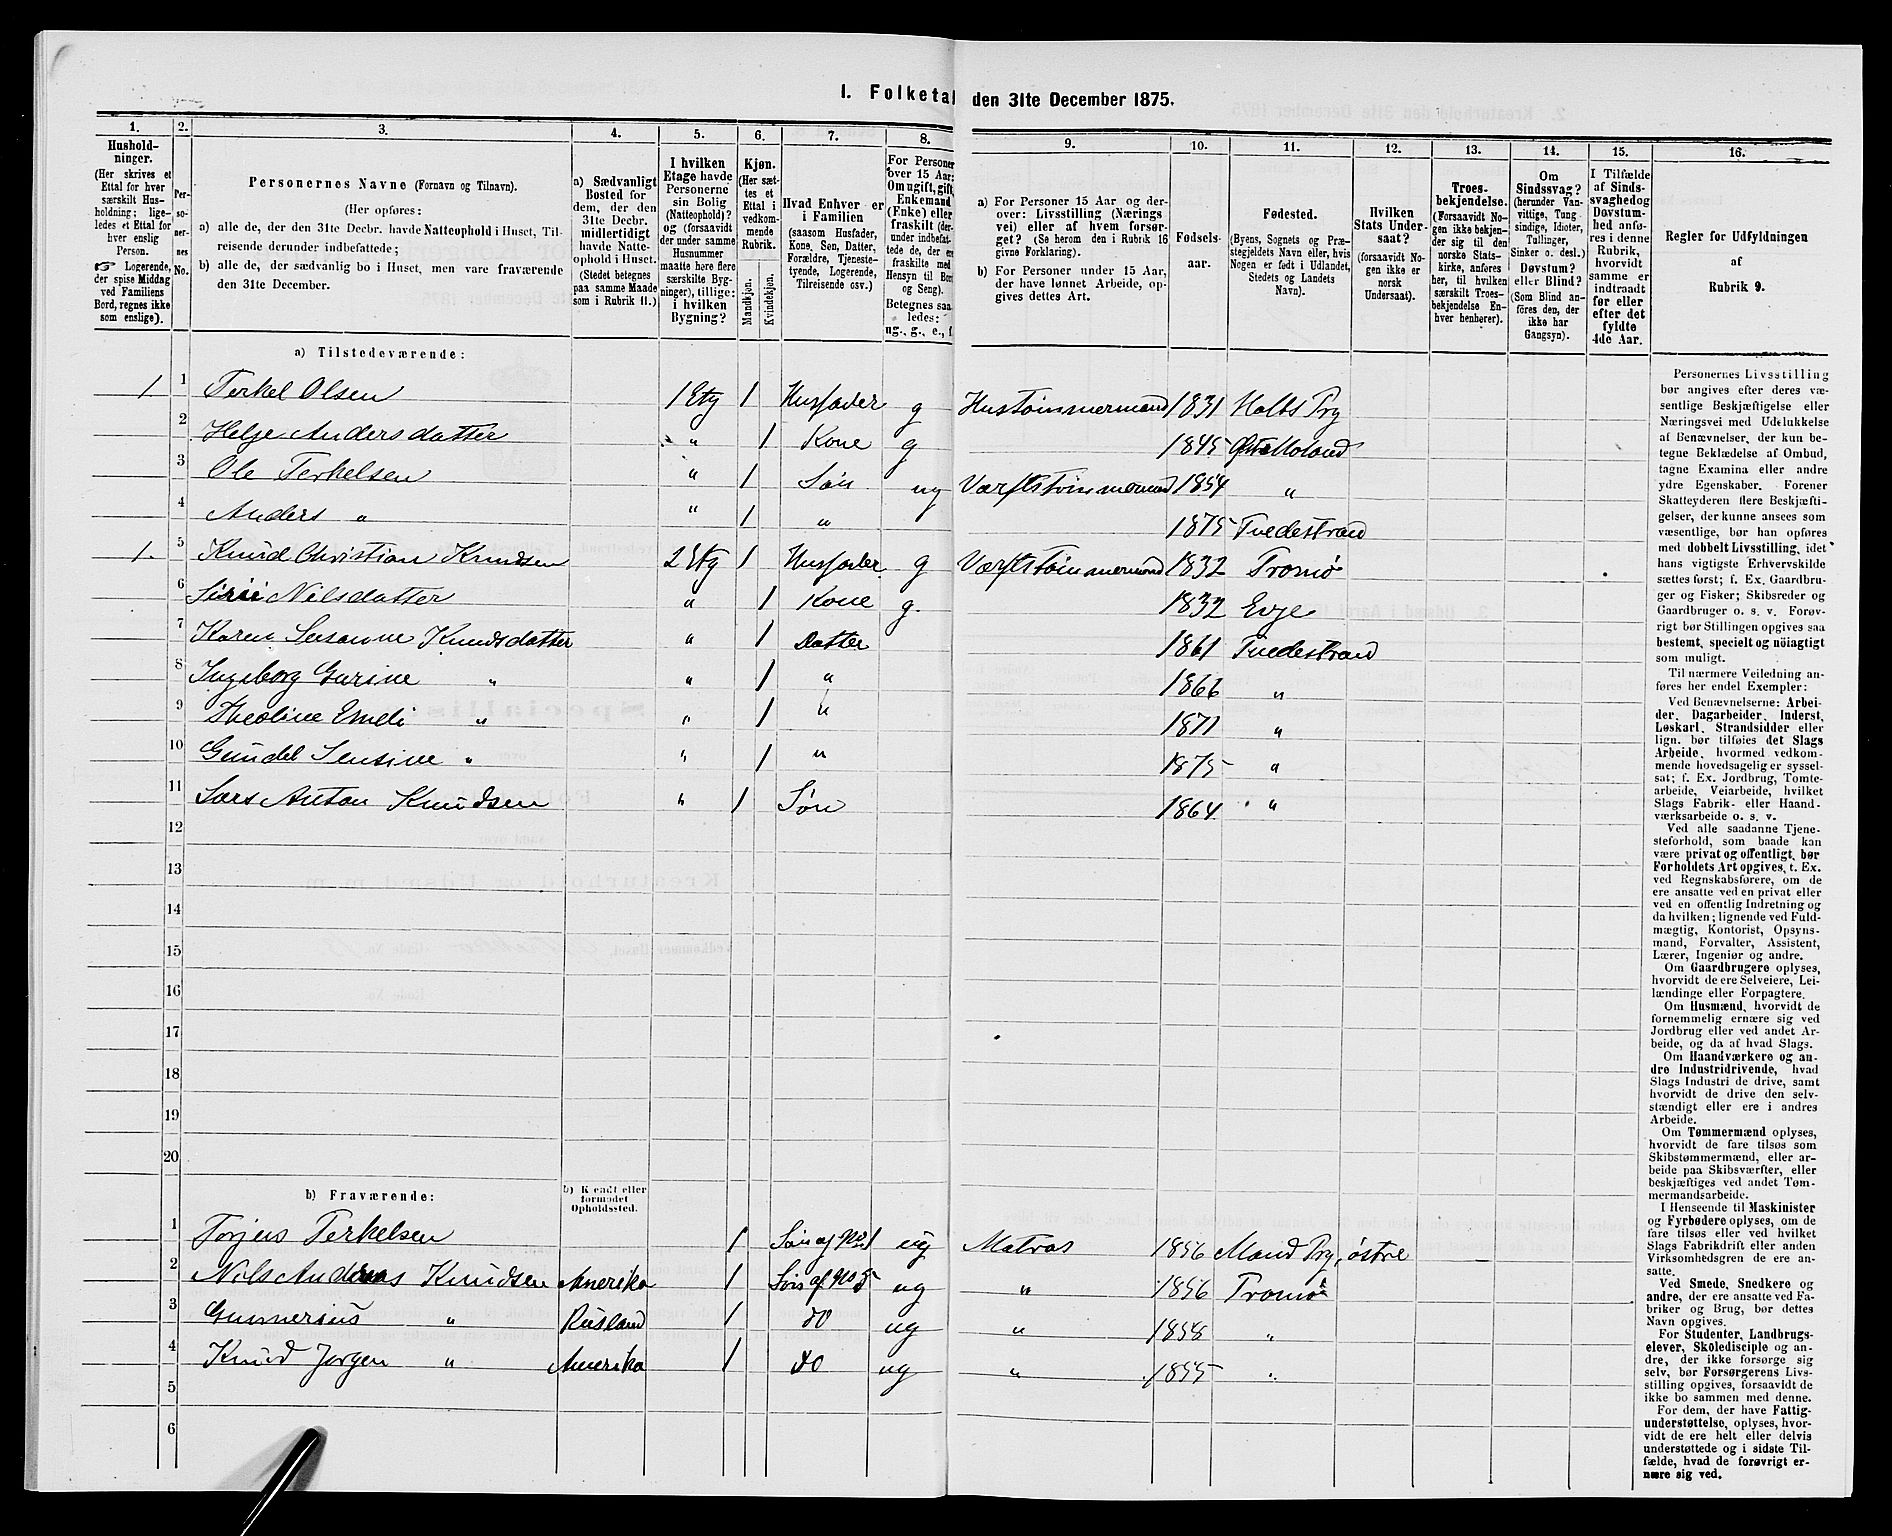 I. Folketal den 31te December 1875.
1. 2. 3. 4. 5. 6. 7. 8. 9. 10. 11. 12. 13. 14. 15. 16.
Hushold-
ninger.
(Her skrives et
Ettal for hver
særskilt Hus-
holdning; lige-
ledes et Ettal for
hver enslig
Person.
Logerende,
der spise Middag
ved Familiens
Bord, regnes ikke
som enslige).
Per-
so-
ner-
nes
No.
Personernes Navne (Fornavn og Tilnavn).
(Her opføres:
a) alle de, der den 31te Decbr. havde Natteophold i Huset, Til-
reisende derunder indbefattede;
b) alle de, der sædvanlig bo i Huset, men vare fraværende
den 31te December.
a) Sædvanligt
Bosted for
dem, der den
31te Decbr.
midlertidigt
havde Natte-
ophold i Huset.
(Stedet betegnes
paa samme Maade
som i Rubrik 11.)
I hvilken
Etage havde
Personerne
sin Bolig
(Natteophold)?
og (forsaavidt
der under samme
Husnummer
maatte høre flere
særskilte Byg-
ninger), tillige:
i hvilken
Bygning?
Kjøn.
(Her sæt-
tes et
Ettal i
vedkom-
mende
Rubrik.
Mandkjøn.
Kvindekjøn.
Hvad Enhver er
i Familien
(saasom Husfader,
Kone, Søn, Datter,
Forældre, Tjeneste-
tyende, Logerende,
Tilreisende osv.)
For Personer
over 15 Aar:
Om ugift, gift,
Enkemand
(Enke) eller
fraskilt (der-
under indbefat-
tede de, der ere
fraskilte med
Hensyn til Bord
og Seng).
Betegnes saa-
ledes:
ug., g., e., f.
a) For Personer 15 Aar og der-
over: Livsstilling (Nærings
vei) eller af hvem forsør-
get? (Se herom den i Rubrik 16
givne Forklaring).
b) For Personer under 15 Aar,
der have lønnet Arbeide, op-
gives dettes Art.
Fødsels-
aar.
Fødested.
(Byens, Sognets og Præ-
stegjeldets Navn eller, hvis
Nogen er født i Udlandet,
Stedets og Landets
Navn).
Hvilken
Stats Under-
saat?
(forsaavidt No-
gen ikke er
norsk
Undersaat).
Troes-
bekjendelse.
(Forsaavidt No-
gen ikke bekjen-
der sig til den
norske Stats-
kirke, anføres
her, til hvilken
særskilt Troes-
bekjendelse En-
hver henhører).
Om
Sindssvag?
(herunder Van-
vittige, Tung
sindige, Idioter,
Tullinger,
Sinker o. desl.)
Døvstum?
eller Blind?
(Som Blind an-
føres den, der
ikke har
Gangsyn).
I Tilfælde
af Sinds-
svaghed og
Døvstum-
hed anfø-
res i denne
Rubrik,
hvorvidt
samme er
indtraadt
før eller
efter det
fyldte
4de Aar.
Regler for Udfyldningen
af
Rubrik 9.
a) Tilstedeværende:
1 1 Terkel Olsen 1 Etg 1 Husfader g Hustømmermand 1831 Holts Prg
2 Helje Andersdatter " 1 Kone g 1845 Østre Moland
3 Ole Terkelsen " 1 Søn ug Værftstømmermand 1854 "
4 Anders " " 1 " 1875 Tvedestrand
1. 5 Knud Christian Knudsen 2 Etg 1 Husfader g Værftstømmermand 1832 Tromø
6 Sirii Nilsdatter " 1 Kone g. 1832 Evje
7 Karen Susanne Knudsdatter " 1 Datter 1861 Tvedestrand
8 Ingeborg Gurine " " 1 " 1866 "
9 Theoline Emeli " " 1 " 1871 "
10 Gundel Jensine " " 1 " 1875 "
11 Lars Anton Knudsen " 1 Søn 1864 "
12
13
14
15
16
17
18
19
20
b) Fraværende:
b) Kjendt eller
formodet
Opholdssted.
1 Torjus Terkelsen 1 Søn af No 1 ug Matros 1856 Mland Prg, østre
2 Nils Andreas Knudsen Amerika 1 Søn af No 5 ug " 1856 Tromø
3 Gunnerius " Rusland 1 do ug " 1858 "
4 Knud Jørgen " Amerika 1 do ug " 1855 "
5
6
Personernes Livsstilling
bør angives efter deres væ-
sentlige Beskjæftigelse eller
Næringsvei med Udelukkelse
af Benævnelser, der kun be-
tegne Beklædelse af Ombud,
tagne Examina eller andre
ydre Egenskaber. Forener
Skatteyderen flere Beskjæfti-
gelser, der kunne ansees som
væsentlige, bør han opføres
med dobbelt Livsstilling, idet
hans vigtigste Erhvervskilde
sættes først; f. Ex. Gaardbru-
ger og Fisker; Skibsreder og
Gaardbruger o. s. v. Forøv-
rigt bør Stillingen opgives saa
bestemt, specielt og nöiagtigt
som muligt.
Til nærmere Veiledning an-
føres her endel Exempler:
Ved Benævnelserne: Arbei-
der, Dagarbeider, Inderst,
Løskarl, Strandsidder eller
lign. bør tilføies det Slags
Arbeide, hvormed vedkom-
mende hovedsagelig er syssel-
sat; f. Ex. Jordbrug, Tomte-
arbeide, Veiarbeide, hvilket
Slags Fabrik- eller Haand-
værksarbeide o. s. v.
Ved alle saadanne Tjene-
steforhold, som baade kan
være privat og offentligt, bør
Forholdets Art opgives, t. Ex.
ved Regnskabsførere, om de
ere ansatte ved en privat eller
ved en offentlig Indretning og
da hvilken; lignende ved Fuld-
mægtig, Kontorist, Opsyns-
mand, Forvalter, Assistent,
Lærer, Ingeniør og andre.
Om Gaardbrugere oplyses,
hvorvidt de ere Selveiere, Lei-
lændinge eller Forpagtere.
Om Husmænd, hvorvidt de
fornemmelig ernære sig ved
Jordbrug eller ved andet Ar-
beide, og da af hvad Slags.
Om Haandværkere og an-
dre Industridrivende, hvad
Slags Industri de drive, samt
hvorvidt de drive den selv-
stændigt eller ere i andres
Arbeide.
Om Tømmermænd oplyses,
hvorvidt de fare tilsøs som
Skibstømmermænd, eller ar-
beide paa Skibsværfter, eller
beskjæftiges ved andet Tøm-
mermandsarbeide.
I Henseende til Maskinister
og Fyrbødere oplyses, om de
fare tilsøs eller ved hvilket
Slags Fabrikdrift eller anden
Virksomhedsgren de ere an-
satte.
Ved Smede, Snedkere og
andre, der ere ansatte ved Fa-
briker og Brug, bør dettes
Navn opgives.
For Studenter, Landbrugs-
elever, Skoledisciple og an-
dre, der ikke forsørge sig
selv, bør Forsørgerens Livs-
stilling opgives, forsaavidt de
ikke bo sammen med denne.
For dem, der have Fattig-
understøttelse, oplyses, hvor-
vidt de ere helt eller delvis
understøttede og i sidste Til-
fælde, hvad de forøvrigt er-
nære sig ved.